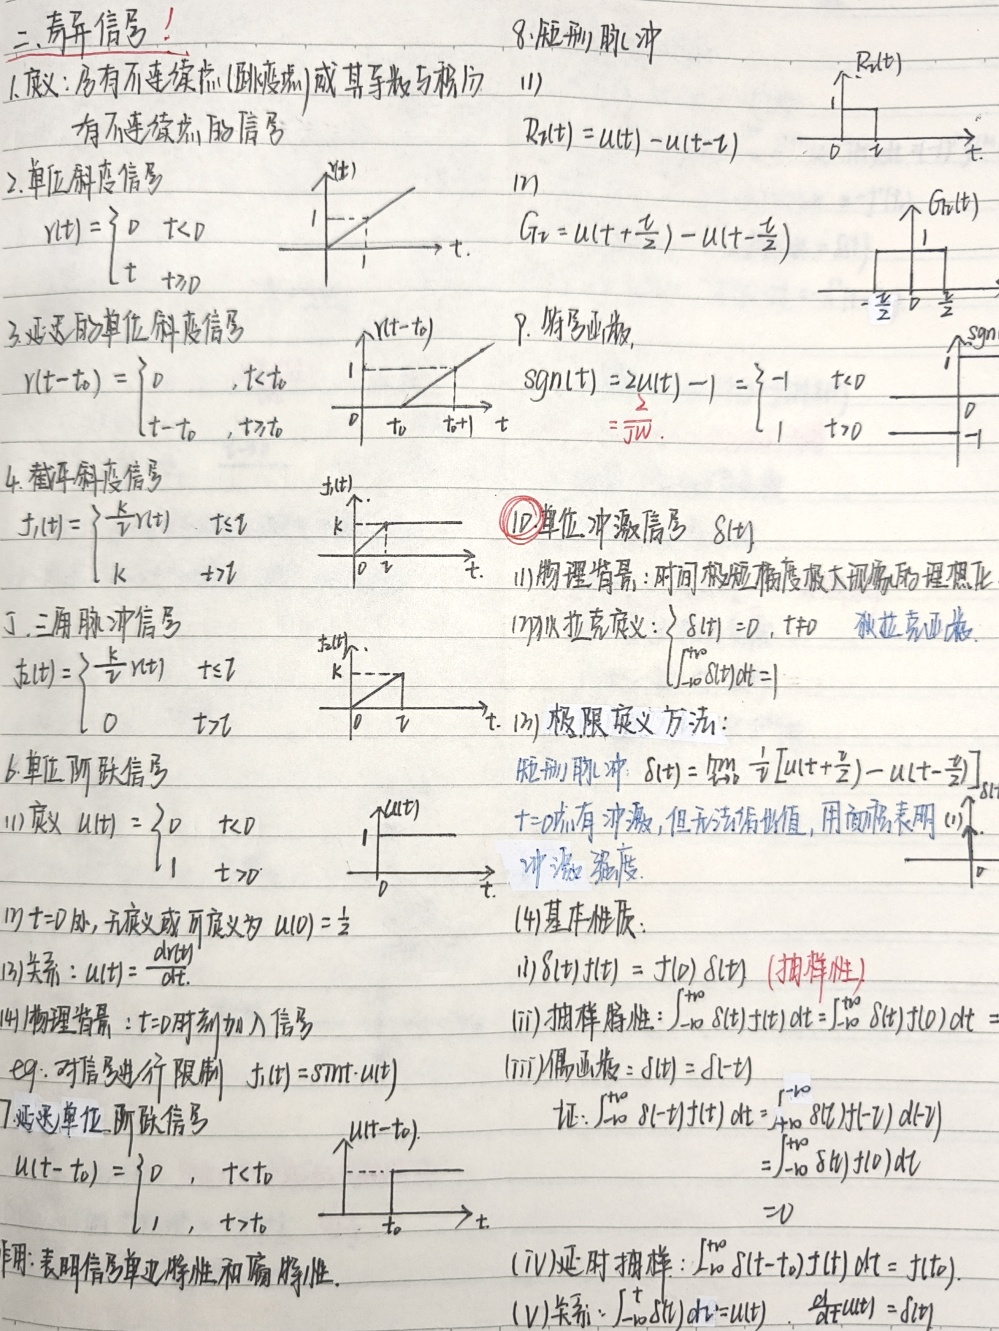 二、奇异信号!
1.定义:含有不连续点(跳变点)或其导数与积分
有不连续点的信号
2.单位斜变信号
r(t) = { 0 t<0
t t≥0
r(t)
1
1
t.
3.延迟的单位斜变信号
r(t-t₀) = { 0 , t<t₀
t-t₀ , t≥t₀
r(t-t₀)
1
0 t₀ t₀+1 t
4.截平斜变信号
f₁(t) = { k/τ r(t) t≤τ
k t>τ
f₁(t)
k
0 τ t.
5.三角脉冲信号
f₂(t) = { k/τ r(t) t≤τ
0 t>τ
f₂(t)
k
0 τ t.
6.单位阶跃信号
(1)定义 u(t) = { 0 t<0
1 t>0
u(t)
1
0 t.
(2) t=0处,无定义或可定义为 u(0)=1/2
(3)关系: u(t) = dr(t)/dt.
(4)物理背景:t=0时刻加入信号
eg.对信号进行限制 f₁(t)=sint·u(t)
7.延迟单位阶跃信号
u(t-t₀) = { 0 , t<t₀
1 , t>t₀
u(t-t₀)
t₀ t.
作用:表明信号单边特性和 特性.
8.矩形脉冲
(1)
Rτ(t) = u(t) - u(t-τ)
Rτ(t)
1
0 τ t.
(2)
Gτ = u(t+τ/2) - u(t-τ/2)
Gτ(t)
1
-τ/2 0 τ/2
9.符号函数.
sgn(t) = 2u(t) - 1 = { -1 t<0
1 t>0
= 2/jw.
sgn(
1
0
-1
10.单位冲激信号 δ(t)
(1)物理背景:时间极短幅度极大现象的理想化
(2)狄拉克定义: { δ(t) = 0 , t≠0 狄拉克函数.
∫₋∞^{+∞} δ(t)dt=1
(3)极限定义方法:
矩形脉冲 δ(t) = lim τ→0 1/τ [u(t+τ/2) - u(t-τ/2)]
t=0点有冲激,但无法给出值,用面积表明
冲激强度.
δ(t
(1)
0
(4)基本性质:
(i) δ(t)f(t) = f(0)δ(t) (抽样性)
(ii)抽样特性: ∫₋∞^{+∞} δ(t)f(t)dt = ∫₋∞^{+∞} δ(t)f(0)dt =
(iii)偶函数: δ(t) = δ(-t)
证: ∫₋∞^{+∞} δ(-t)f(t)dt = ∫₊∞^{-∞} δ(τ)f(-τ)d(-τ)
= ∫₋∞^{+∞} δ(τ)f(0)dτ
=0
(iv)延时抽样: ∫₋∞^{+∞} δ(t-t₀)f(t)dt = f(t₀).
(v)关系: ∫₋∞^{t} δ(τ)dτ=u(t) . d/dt u(t) = δ(t)